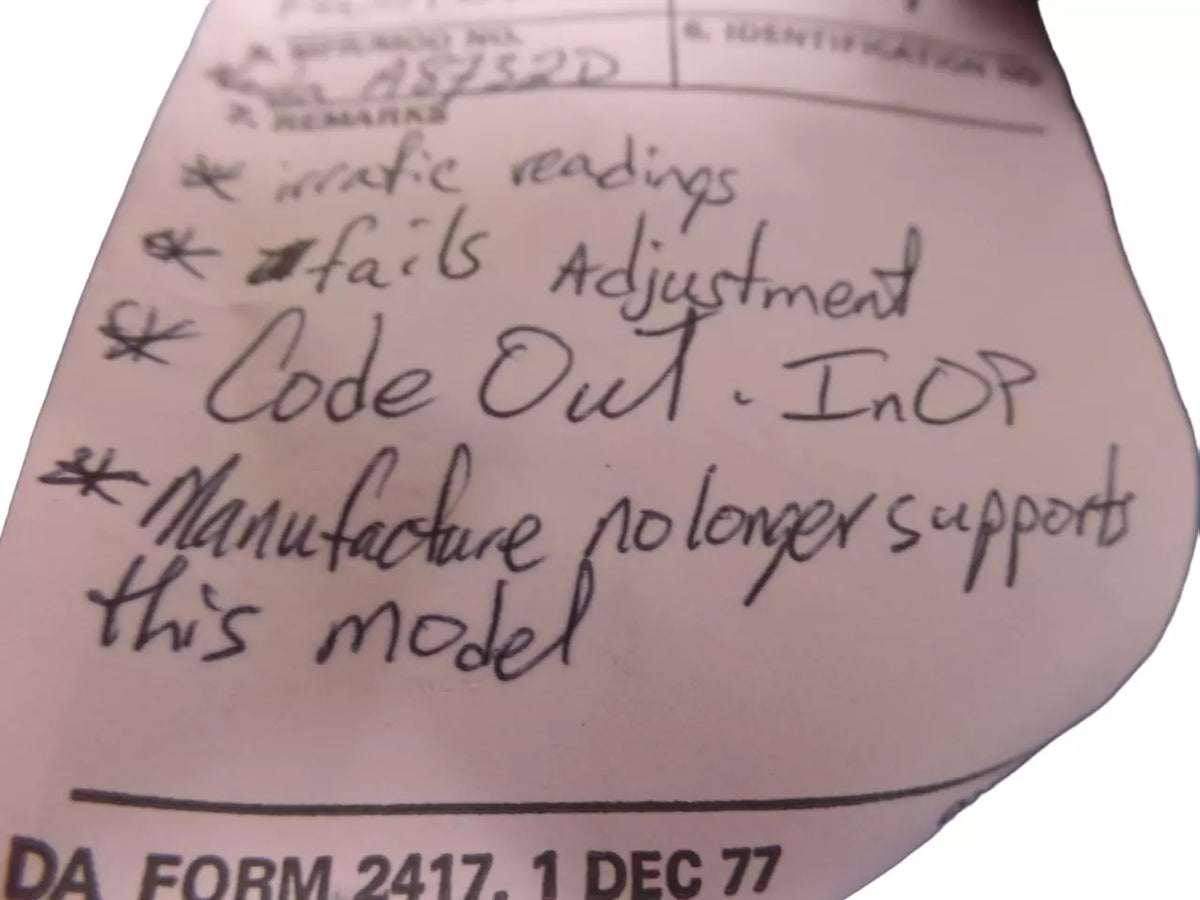 6. IDENTIFICATION NO.
A8732D
7. REMARKS
* irratic readings
* fails Adjustment
* Code Out. InOP
* Manufacture no longer supports
this model
DA FORM 2417, 1 DEC 77